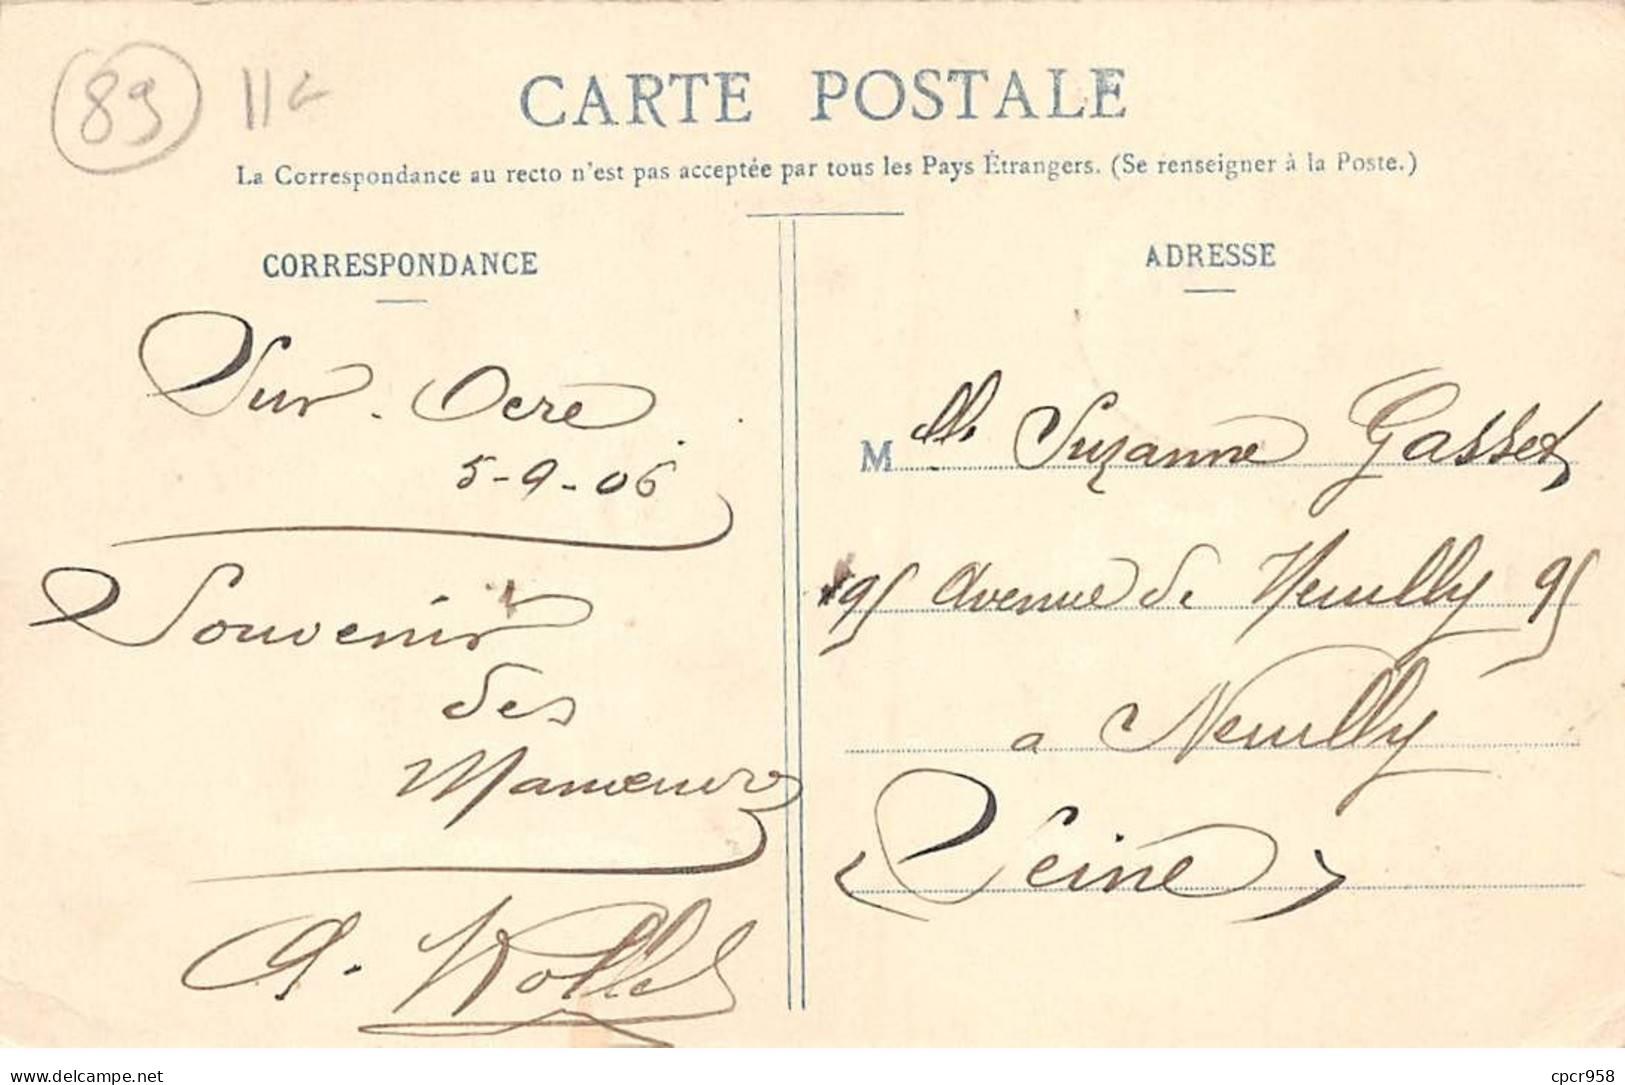 89 11
CARTE POSTALE
La Correspondance au recto n'est pas acceptée par tous les Pays Étrangers. (Se renseigner à la Poste.)
CORRESPONDANCE
Sur-Ocre
5-9-06
Souvenir
des
Manœuvres
A.
ADRESSE
Melle Suzanne Gasset
95 Avenue de Neuilly 95
a Neuilly
(Seine)
www.delcampe.net
cpcr958